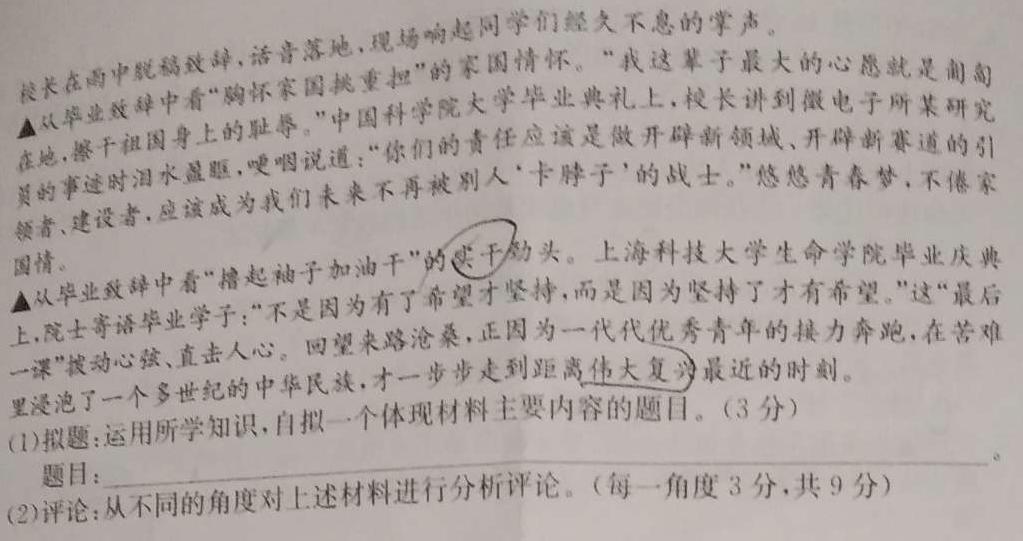 校长在雨中脱稿致辞,话音落地,现场响起同学们经久不息的掌声。
▲从毕业致辞中看“胸怀家国挑重担”的家国情怀。“我这辈子最大的心愿就是匍匐
在地,擦干祖国身上的耻辱。”中国科学院大学毕业典礼上,校长讲到微电子所某研究
员的事迹时泪水盈眶,哽咽说道:“你们的责任应该是做开辟新领域、开辟新赛道的引
领者、建设者,应该成为我们未来不再被别人‘卡脖子’的战士。”悠悠青春梦,不倦家
国情。
▲从毕业致辞中看“撸起袖子加油干”的实干劲头。上海科技大学生命学院毕业庆典
上,院士寄语毕业学子:“不是因为有了希望才坚持,而是因为坚持了才有希望。”这“最后
一课”拨动心弦、直击人心。回望来路沧桑,正因为一代代优秀青年的接力奔跑,在苦难
里浸泡了一个多世纪的中华民族,才一步步走到距离伟大复兴最近的时刻。
(1)拟题:运用所学知识,自拟一个体现材料主要内容的题目。(3分)
题目:。
(2)评论:从不同的角度对上述材料进行分析评论。(每一角度3分,共9分)